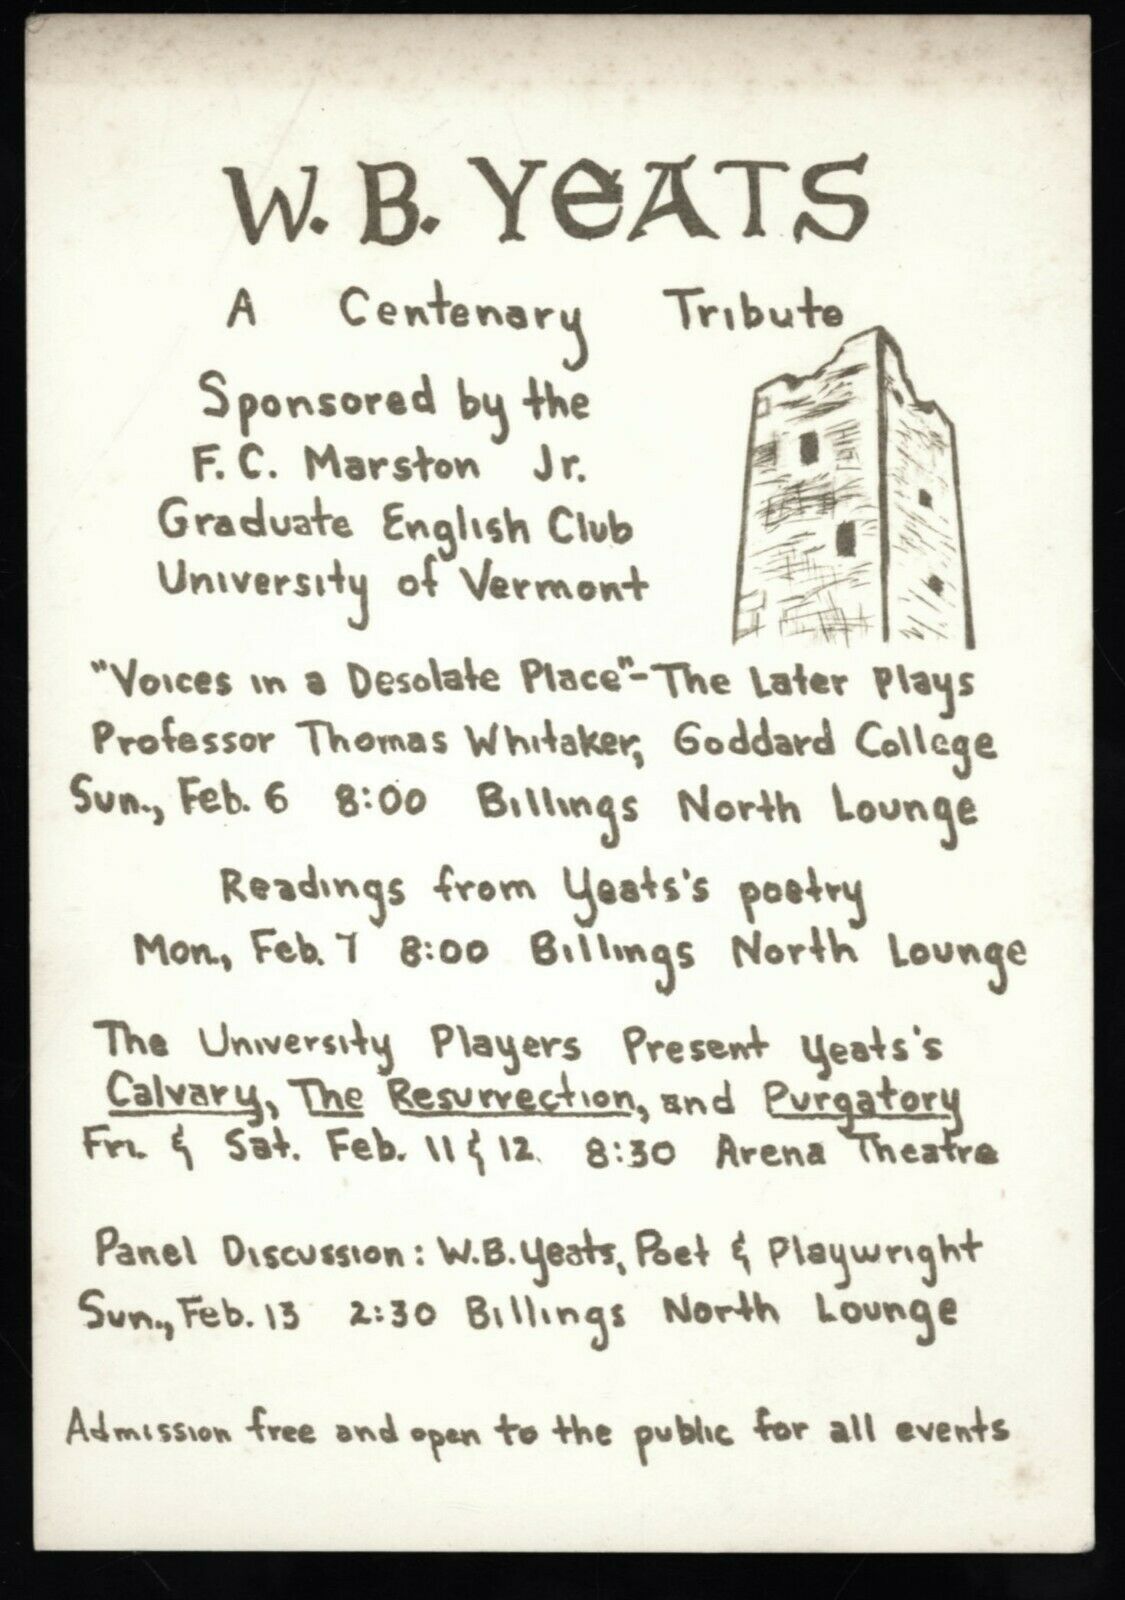 W. B. YeATS
A Centenary Tribute
Sponsored by the
F. C. Marston Jr.
Graduate English Club
University of Vermont
"Voices in a Desolate Place" - The Later Plays
Professor Thomas Whitaker, Goddard College
Sun., Feb. 6 8:00 Billings North Lounge
Readings from Yeats's poetry
Mon., Feb. 7 8:00 Billings North Lounge
The University Players Present Yeats's
Calvary, The Resurrection, and Purgatory
Fri. & Sat. Feb. 11 & 12 8:30 Arena Theatre
Panel Discussion: W.B. Yeats, Poet & Playwright
Sun., Feb. 13 2:30 Billings North Lounge
Admission free and open to the public for all events